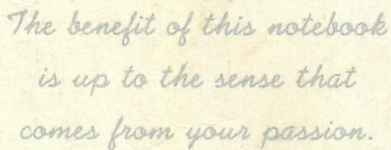 The benefit of this notebook
is up to the sense that
comes from your passion.